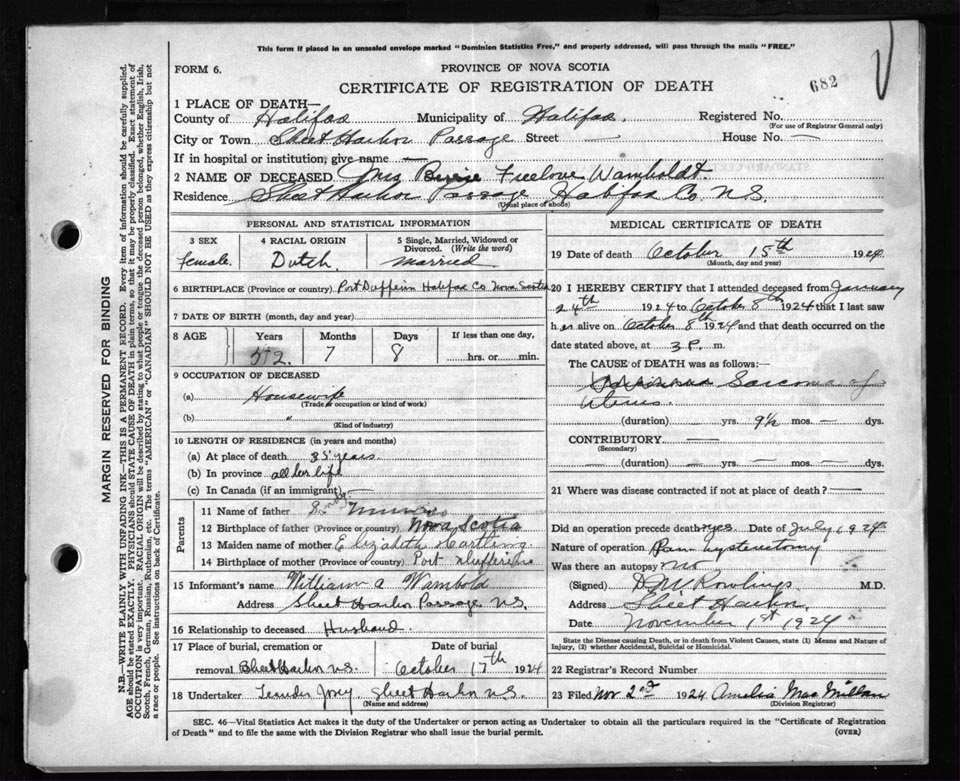 This form if placed in an unsealed envelope marked "Dominion Statistics Free," and properly addressed, will pass through the mails "FREE."
FORM 6.
PROVINCE OF NOVA SCOTIA
CERTIFICATE OF REGISTRATION OF DEATH
682
1 PLACE OF DEATH—
County of Halifax Municipality of Halifax. Registered No.
(For use of Registrar General only)
City or Town Sheet Harbor Passage Street — House No. —
If in hospital or institution, give name —
2 NAME OF DECEASED Mrs Freelove Wamboldt
Residence Sheet Harbor Passage Halifax Co. N.S.
(Usual place of abode)
PERSONAL AND STATISTICAL INFORMATION
3 SEX 4 RACIAL ORIGIN 5 Single, Married, Widowed or Divorced. (Write the word)
female. Dutch. married
6 BIRTHPLACE (Province or country) Port Dufferin Halifax Co Nova Scotia
7 DATE OF BIRTH (month, day and year)
8 AGE Years Months Days If less than one day,
52 7 8 hrs. or min.
9 OCCUPATION OF DECEASED
(a) Housewife
(Trade or occupation or kind of work)
(b) "
(Kind of industry)
10 LENGTH OF RESIDENCE (in years and months)
(a) At place of death 35 years.
(b) In province all her life
(c) In Canada (if an immigrant) —
Parents
11 Name of father
12 Birthplace of father (Province or country) Nova Scotia
13 Maiden name of mother Elizabeth Hartling
14 Birthplace of mother (Province or country) Port Dufferin
15 Informant's name William A Wambold
Address Sheet Harbor Passage N.S.
16 Relationship to deceased Husband
17 Place of burial, cremation or removal Date of burial
Sheet Harbor N.S. October 17th 1924
18 Undertaker Sheet Harbor N.S.
(Name and address)
MEDICAL CERTIFICATE OF DEATH
19 Date of death October 15th 1924
(Month, day and year)
20 I HEREBY CERTIFY that I attended deceased from January
24th 1924 to October 8th 1924 that I last saw
her alive on October 8th 1924 and that death occurred on the
date stated above, at 3 P. m.
The CAUSE OF DEATH was as follows:—
Sarcoma of
Uterus.
(duration) — yrs. 9½ mos. — dys.
CONTRIBUTORY —
(Secondary)
(duration) — yrs. — mos. — dys.
21 Where was disease contracted if not at place of death? —
Did an operation precede death? yes. Date of July 1924
Nature of operation Pan hysterectomy
Was there an autopsy? no
(Signed) D. M. Rowlings M.D.
Address Sheet Harbor.
Date November 1st 1924
State the Disease causing Death, or in death from Violent Causes, state (1) Means and Nature of Injury, (2) whether Accidental, Suicidal or Homicidal.
22 Registrar's Record Number
23 Filed Nov 2nd 1924 Amelia MacMillan
(Division Registrar)
SEC. 46—Vital Statistics Act makes it the duty of the Undertaker or person acting as Undertaker to obtain all the particulars required in the "Certificate of Registration
of Death" and to file the same with the Division Registrar who shall issue the burial permit.
(OVER)
MARGIN RESERVED FOR BINDING
N.B.—WRITE PLAINLY WITH UNFADING INK—THIS IS A PERMANENT RECORD. Every item of information should be carefully supplied.
AGE should be stated EXACTLY. PHYSICIANS should STATE CAUSE OF DEATH in plain terms, so that it may be properly classified. Exact statement of
OCCUPATION is very important. RACIAL ORIGIN will be described by stating to what people or tongue the deceased person belonged, whether English, Irish,
Scotch, French, German, Russian, Ruthenian, etc. The terms "AMERICAN" or "CANADIAN" SHOULD NOT BE USED as they express citizenship but not
a race or people. See instructions on back of Certificate.